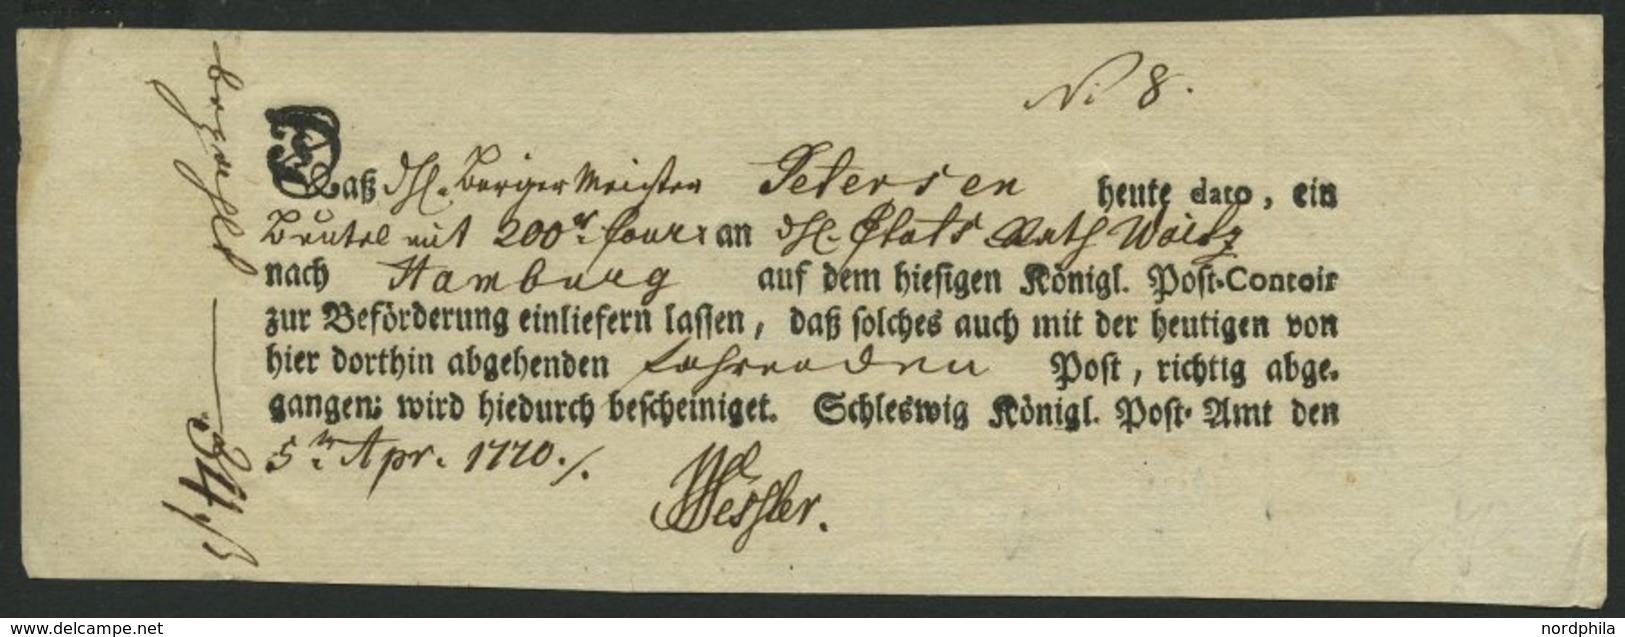 No 8.
Daß Hl. Bürger Meister Petersen heute dato, ein
Beutel mit 200 an Hl. Etats Rath
nach Hamburg auf dem hiesigen Königl. Post-Contoir
zur Beförderung einliefern lassen, daß solches auch mit der heutigen von
hier dorthin abgehenden fahrenden Post, richtig abge-
gangen: wird hiedurch bescheiniget. Schleswig Königl. Post-Amt den
5 Apr. 1770.
Wessler.
bezahlt
www.delcampe.net
nordphila